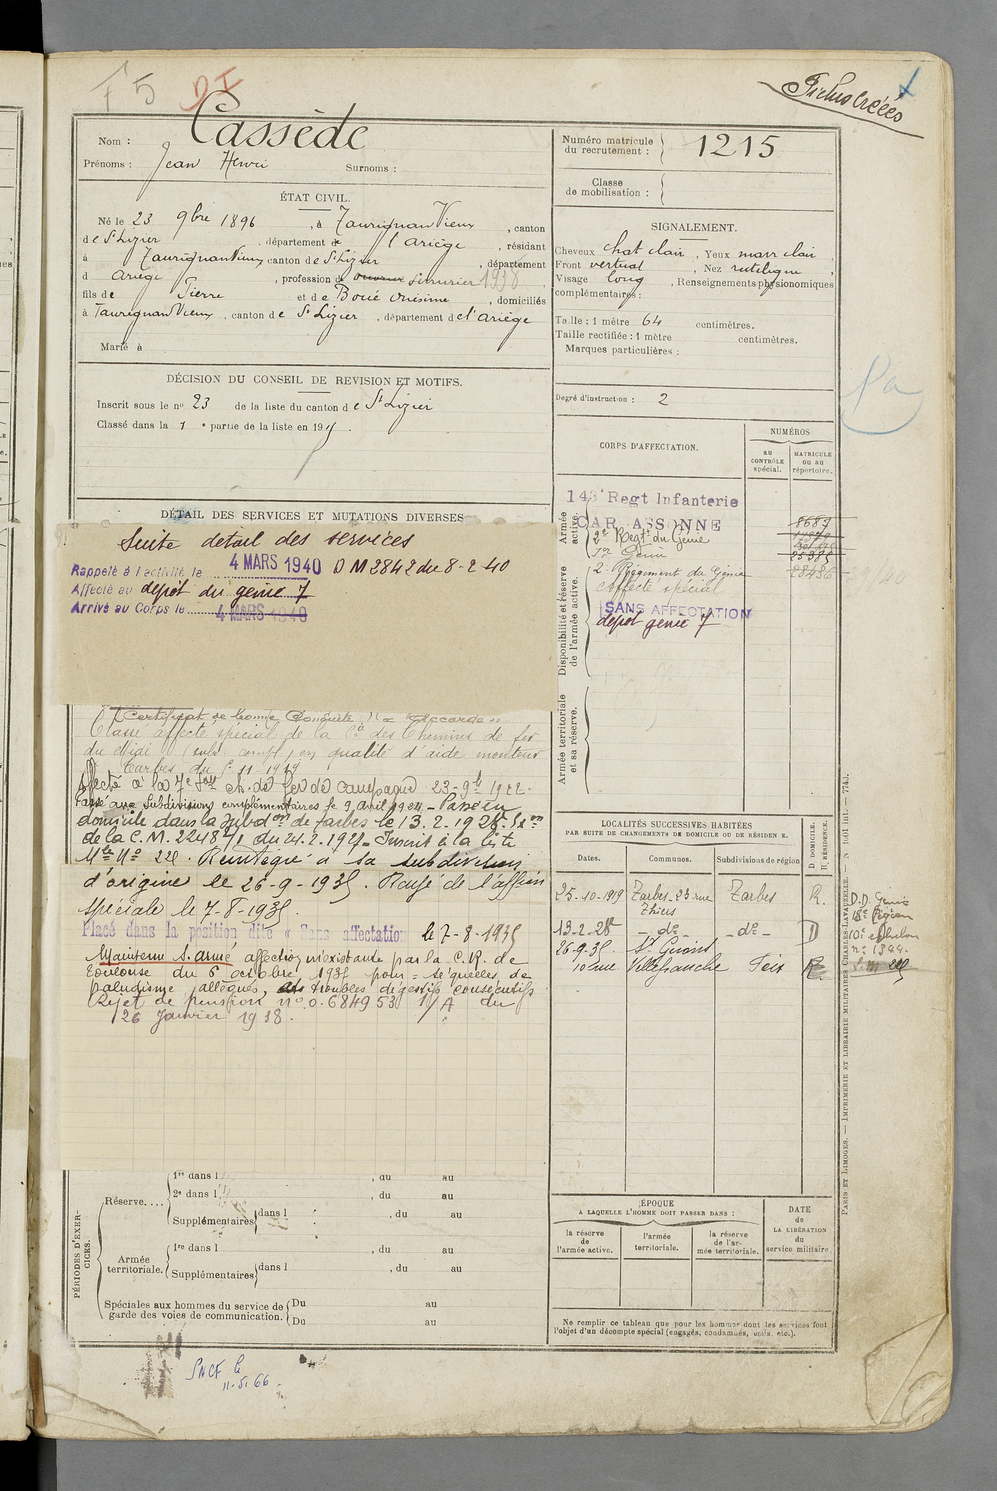 F 5 DI
Fiches créées
Nom : Cassède
Prénoms : Jean Henri Surnoms :
Numéro matricule du recrutement : 1215
Classe de mobilisation :
ÉTAT CIVIL.
Né le 23 9bre 1896, à Taurignan Vieux, canton
de St Lizier, département de l'Ariège, résidant
à Taurignan Vieux, canton de St Lizier, département
d Ariège, profession de ouvrier Serrurier 1938,
fils de Pierre et de Boué Onésime, domiciliés
à Taurignan Vieux, canton de St Lizier, département de l'Ariège
Marié à
SIGNALEMENT.
Cheveux chat clair, Yeux marr clair,
Front vertical, Nez rectiligne,
Visage long, Renseignements physionomiques
complémentaires :
Taille : 1 mètre 64 centimètres.
Taille rectifiée : 1 mètre centimètres.
Marques particulières :
Degré d'instruction : 2
DÉCISION DU CONSEIL DE REVISION ET MOTIFS.
Inscrit sous le n° 23 de la liste du canton de St Lizier
Classé dans la 1e partie de la liste en 1915.
DÉTAIL DES SERVICES ET MUTATIONS DIVERSES
Suite détail des services
Rappelé à l'activité le 4 MARS 1940 DM 2842 du 8-2 40
Affecté au dépôt du génie 7
Arrivé au Corps le 4 MARS 1940
Certificat de bonne Conduite "Accordé".
Classé affecté spécial de la Cie des Chemins de fer
du Midi (subd. compl.) en qualité d'aide monteur
Tarbes du 11 1919
Affecté à la 7e Son ch. de fer de campagne 23-9bre 1922.
Passé aux Subdivisions complémentaires le 9 avril 1924. Passé en
domicile dans la subdon de Tarbes le 13.2.1928.
de la C.M. 22487/1 du 24.2.1927. Inscrit à la liste
Mle No 228. Réintégré à sa subdivision
d'origine le 26-9-1935. Rayé de l'affon
spéciale le 7-8-1935.
Placé dans la position dite « Sans affectation le 7-8-1935
Maintenu S. armé affection inexistante par la C.R. de
Toulouse du 6 octobre 1937 pour "séquelles de
paludisme allégués, troubles digestifs consécutifs
Rejet de pension n° 0.684953 1/A du
26 Janvier 1938.
CORPS D'AFFECTATION.
NUMÉROS
AU CONTRÔLE spécial.
MATRICULE ou au répertoire.
Armée active.
143e Regt Infanterie
CARCASSONNE
2e Regt du Génie
7e Génie
8687
25388
28436
Disponibilité et réserve de l'armée active.
2e Régiment du Génie
affecté spécial
SANS AFFECTATION
dépôt génie 7
Armée territoriale et sa réserve.
LOCALITÉS SUCCESSIVES HABITÉES
PAR SUITE DE CHANGEMENTS DE DOMICILE OU DE RÉSIDENCE.
Dates. Communes. Subdivisions de région
D. DOMICILE. R. RÉSIDENCE.
25-10-1919 Tarbes 23 rue Thiers Tarbes R.
13-2-28 -do- -do- D
26-9-35 St Girons
10 rue Villefranche Foix R
D.D. Génie
18e Région
10e échelon
n° 1344.
PÉRIODES D'EXERCICES.
Réserve.... 1re dans l , du au
2e dans l , du au
Supplémentaires dans l , du au
Armée territoriale. 1re dans l , du au
Supplémentaires dans l , du au
Spéciales aux hommes du service de garde des voies de communication. Du au
Du au
ÉPOQUE
A LAQUELLE L'HOMME DOIT PASSER DANS :
la réserve de l'armée active.
l'armée territoriale.
la réserve de l'armée territoriale.
DATE de LA LIBÉRATION du service militaire.
Ne remplir ce tableau que pour les hommes dont les services font
l'objet d'un décompte spécial (engagés, condamnés, omis, etc.).
PARIS ET LIMOGES. — IMPRIMERIE ET LIBRAIRIE MILITAIRES CHARLES-LAVAUZELLE.
SNCF le
11-5-66